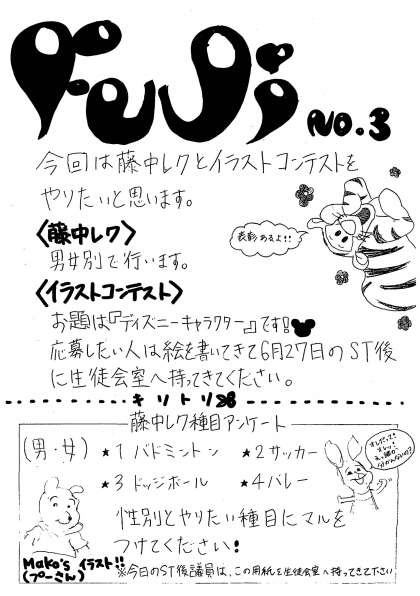 Fuji
NO.3
今回は藤中レクとイラストコンテストを
やりたいと思います。
〈藤中レク〉
男女別で行います。
表彰あるよ!!
〈イラストコンテスト〉
お題は『ディズニーキャラクター』です!
応募したい人は絵を書いてきて6月27日のST後
に生徒会室へ持ってきてください。
キリトリ
藤中レク種目アンケート
(男・女) ★1 バドミントン ★2 サッカー
★3 ドッジボール ★4 バレー
性別とやりたい種目にマルを
つけてください!
Mako's イラスト!!
(プーさん)
※今日のST後議員は、この用紙を生徒会室へ持ってきてください